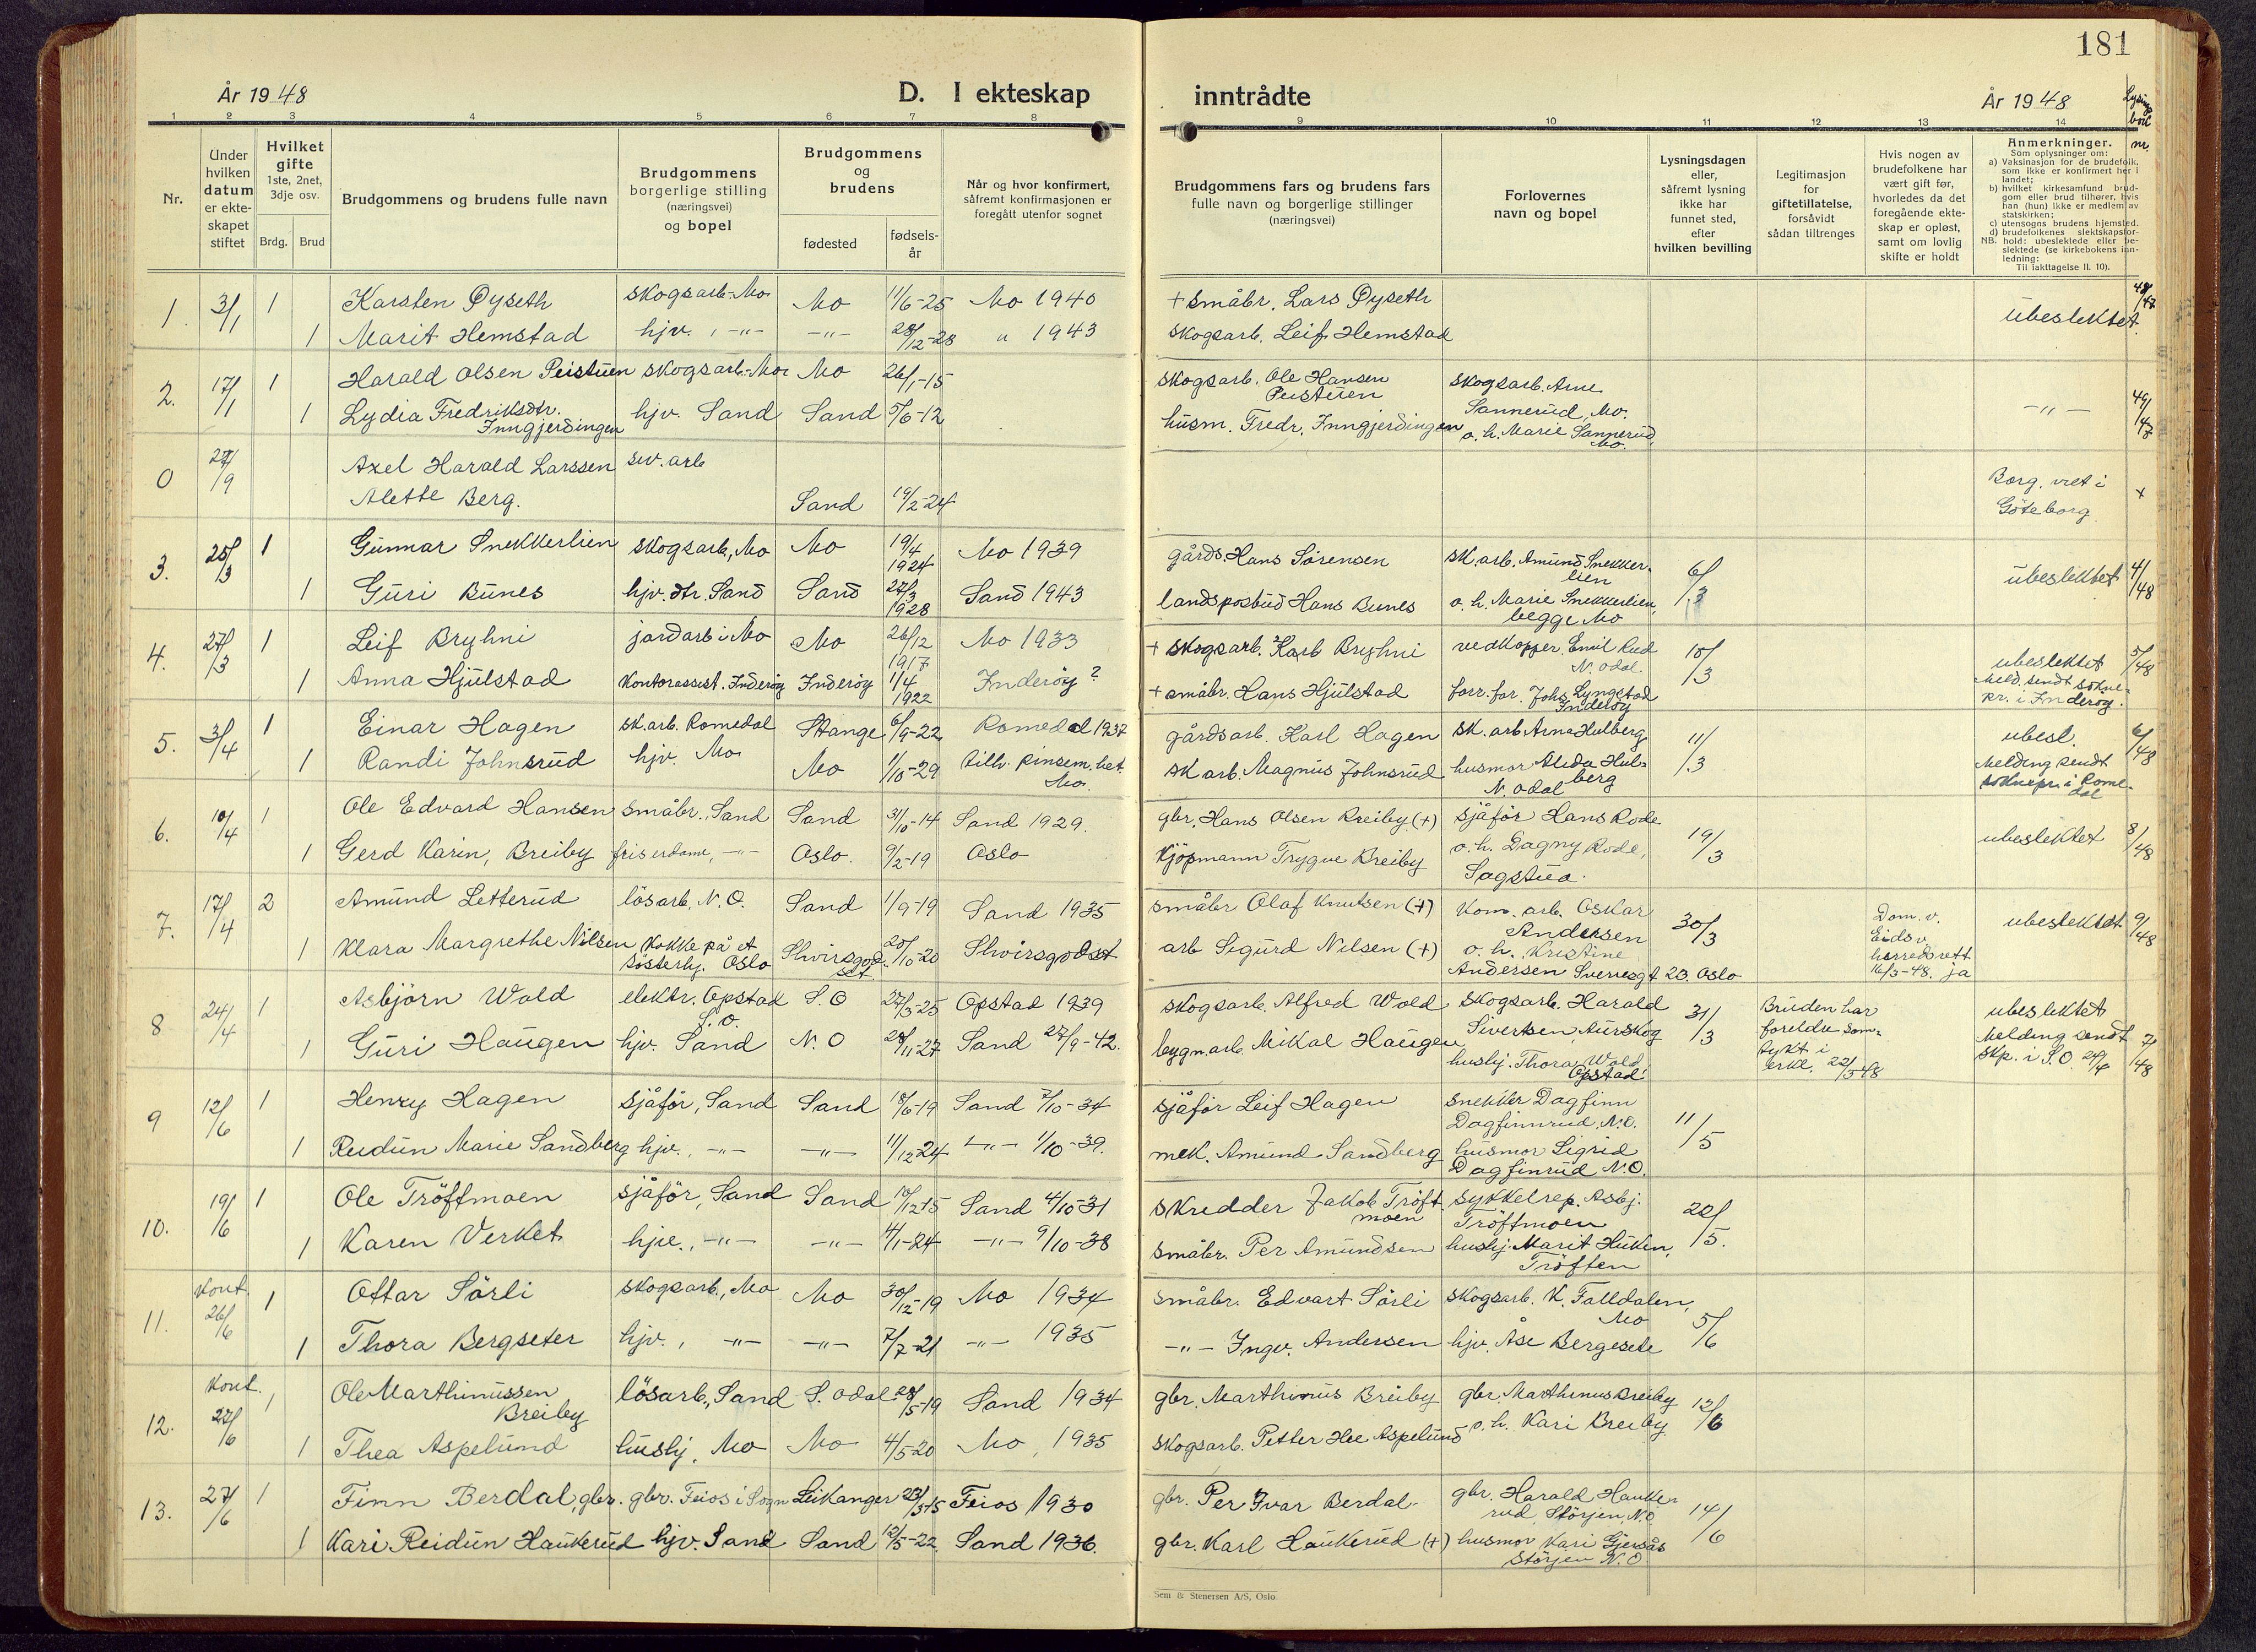 181
År 1948
D. I ekteskap
inntrådte
År 1948
Lysing
bok
nr.
1 2 3 4 5 6 7 8
9 10 11 12 13 14
Nr.
Under
hvilken
datum
er ekte-
skapet
stiftet
Hvilket
gifte
1ste, 2net,
3dje osv.
Brdg. Brud
Brudgommens og brudens fulle navn
Brudgommens
borgerlige stilling
(næringsvei)
og bopel
Brudgommens
og
brudens
fødested
fødsels-
år
Når og hvor konfirmert,
såfremt konfirmasjonen er
foregått utenfor sognet
Brudgommens fars og brudens fars
fulle navn og borgerlige stillinger
(næringsvei)
Forlovernes
navn og bopel
Lysningsdagen
eller,
såfremt lysning
ikke har
funnet sted,
efter
hvilken bevilling
Legitimasjon
for
giftetillatelse,
forsåvidt
sådan tiltrenges
Hvis nogen av
brudefolkene har
vært gift før,
hvorledes da det
foregående ekte-
skap er opløst,
samt om lovlig
skifte er holdt
Anmerkninger.
Som oplysninger om:
a) Vaksinasjon for de brudefolk,
som ikke er konfirmert her i
landet;
b) hvilket kirkesamfund brud-
gom eller brud tilhører, hvis
han (hun) ikke er medlem av
statskirken;
c) utensogns brudens hjemsted.
d) brudefolkenes slektskapsfor-
NB. hold: ubeslektede eller be-
slektede (se kirkebokens inn-
ledning:
Til iakttagelse II. 10).
1. 3/1 1 Karsten Øyseth skogsarb. Mo Mo 11/6-25 Mo 1940 + småbr. Lars Øyseth ubeslektet.
1 Marit Hemstad hjv., -"- -"- 28/12-28 " 1943 skogsarb. Leif Hemstad
2. 17/1 1 Harald Olsen Peistuen skogsarb. Mo Mo 26/1-15 skogsarb. Ole Hansen Peistuen skogsarb. Arne Sannerud, Mo. -"- 49/47
1 Lydia Fredriksdtr. Inngjerdingen hjv. Sand Sand 5/6-12 husm. Fredr. Inngjerdingen o.h. Marie Sannerud, Mo.
0 27/9 Axel Harald Larssen sev. arb Borg. viet i Göteborg +
Alette Berg. Sand 19/2-24
3. 25/3 1 Gunnar Snekkerlien skogsarb, Mo Mo 19/4 1924 Mo 1939 gårds. Hans Sörensen sk.arb. Amund Snekkerlien 6/3 ubeslektet 4/48
1 Guri Bunes hjv. dtr. Sand Sand 27/3 1928 Sand 1943 landsposbud Hans Bunes o.h. Marie Snekkerlien, begge Mo
4. 27/3 1 Leif Bryhni jordarb i Mo Mo 26/12 1917 Mo 1933 + skogsarb. Karl Bryhni vedkopper. Emil Rud N. Odal. 10/3 ubeslektet 5/48
1 Anna Hjulstad Kontorassist. Inderøy Inderøy 1/4 1922 Inderøy ? + småbr. Hans Hjulstad forr.for. Johs Lyngstad Inderøy meld. sendt sokne-pr. i Inderøy.
5. 3/4 1 Einar Hagen sk.arb. Romedal Stange 6/9-22 Romedal 1937 gårdsarb. Karl Hagen sk.arb Arne Hulberg 11/3 ubesl. 6/48
1 Randi Johnsrud hjv. Mo Mo 1/10-29 tilh. pinsem.het. Mo. sk arb. Magnus Johnsrud N. Odal husmor Alida Hulberg Melding sendt soknepr. i Romedal
6. 10/4 1 Ole Edvard Hansen småbr., Sand Sand 31/10-14 Sand 1929. gbr. Hans Olsen Breiby (+) sjåför Hans Rode 19/3 ubeslektet 8/48
1 Gerd Karin, Breiby friserdame, -"- Oslo. 9/2-19 Oslo Kjöpmann Trygve Breiby o.h. Dagny Rode, Sagstua.
7. 17/4 2 Amund Letterud lösarb, N.O. Sand 1/9-19 Sand 1935 småbr Olaf Knutsen (+) Kom. arb. Oskar Andersen 30/3 Dom. v. Eidsv. herredsrett 16/3-48. ja ubeslektet 9/48
1 Klara Margrethe Nilsen Kokke på et sösterhj. Oslo 20/10-20 arb Sigurd Nilsen (+) o.h. Kristine Andersen Sverresgt 23. Oslo
8 24/4 1 Asbjörn Wold elektr. Opstad S.O. S.O 27/3-25 Opstad 1939 skogsarb. Alfred Wold skogsarb. Harald Sivertsen, Aurskog 31/3 Bruden har foreldresomtykt i erkl. 22/3-48 ubeslektet
1 Guri Haugen hjv. Sand N.O 28/11-27 Sand 27/9-42. bygn.arb. Mikal Haugen hushj. Thora Wold Opstad Melding sendt skp. i S.O. 24/4 7/48
9 12/6 1 Henry Hagen sjåför, Sand Sand 18/6-19 Sand 7/10-34 sjåför Leif Hagen snekker Dagfinn Dagfinnrud, N.O. 11/5
1 Reidun Marie Sandberg hjv., -"- -"- 11/12-24 -"- 1/10-39. mek. Amund Sandberg husmor Sigrid Dagfinrud N.O.
10. 19/6 1 Ole Tröftmoen sjåför, Sand Sand 10/12-15 Sand 4/10-31 skredder Jakob Tröftmoen sykkelrep. Asbj. Tröftmoen 20/5.
1 Karen Verket hjv., -"- -"- 4/1-24 -"- 9/10-38 småbr. Per Amundsen hushj. Marit Huken, Tröften
11. Kont. 26/6 1 Ottar Sörli skogsarb., Mo Mo 30/12-19 Mo 1934 småbr. Edvart Sörli skogsarb. K. Falldalen, Mo 5/6
1 Thora Bergseter hjv., -"- -"- 7/7-21 -"- 1935 -"- Ingv. Andersen hjv. Åse Bergesete
12. Kont. 27/6 1 Ole Marthinussen Breiby lösarb., Sand S. Odal 28/5-19 Sand 1934 gbr. Marthinus Breiby gbr. Marthinus Breiby 12/6
1 Thea Aspelund hushj, Mo Mo 4/5-20 Mo, 1935 skogsarb. Petter Hee Aspelund o.h. Kari Breiby
13. 27/6 1 Finn Berdal, gbr. gbr. Feios i Sogn Leikanger 23/3-15 Feios 1930 gbr. Per Ivar Berdal gbr. Harald Haukerud, Störjen, N.O 14/6
1 Kari Reidun Haukerud hjv. Sand Sand 12/5-22. Sand 1936. gbr. Karl Haukerud (+) husmor Kari Gjersås Störjen N.O
Sem & Stenersen A/S, Oslo.